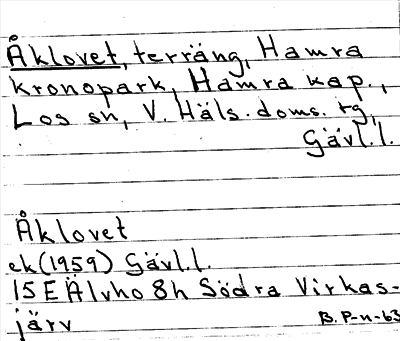 Åklovet, terräng, Hamra
kronopark, Hamra kap.,
Los sn, V. Häls. doms. tg,
Gävl.l.
Åklovet
ek(1959) Gävl.l.
15E Älvho 8h Södra Virkas-
järv
B.P-n-63